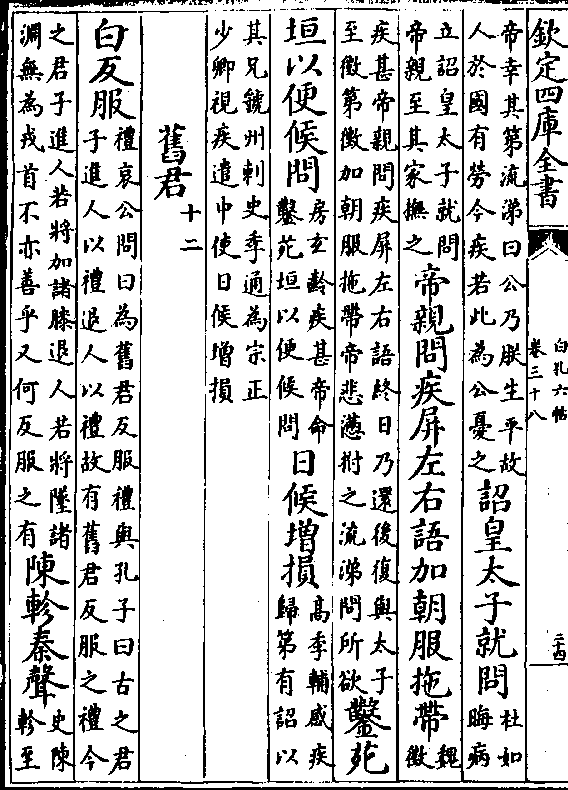 欽定四庫全書
白孔六帖
卷三十八
二十四
帝幸其第流涕曰公乃朕生平故
人於國有勞今疾若此為公憂之
詔皇太子就問
杜如
晦病
立詔皇太子就問
帝親至其家撫之
帝親問疾屏左右語加朝服拖帶
魏
徵
疾甚帝親問疾屏左右語終日乃還後復與太子
至徵第徵加朝服拖帶帝悲懣拊之流涕問所欲
鑿苑
垣以便候問
房玄齡疾甚帝命
鑿苑垣以便候問
日候增損
高季輔感疾
歸第有詔以
其兄虢州刺史季通為宗正
少卿視疾遣中使日候增損
舊君
十二
白反服
禮哀公問曰為舊君反服禮與孔子曰古之君
子進人以禮退人以禮故有舊君反服之禮今
之君子進人若將加諸膝退人若將墜諸
淵無為戎首不亦善乎又何反服之有
陳軫秦聲
史陳
軫至